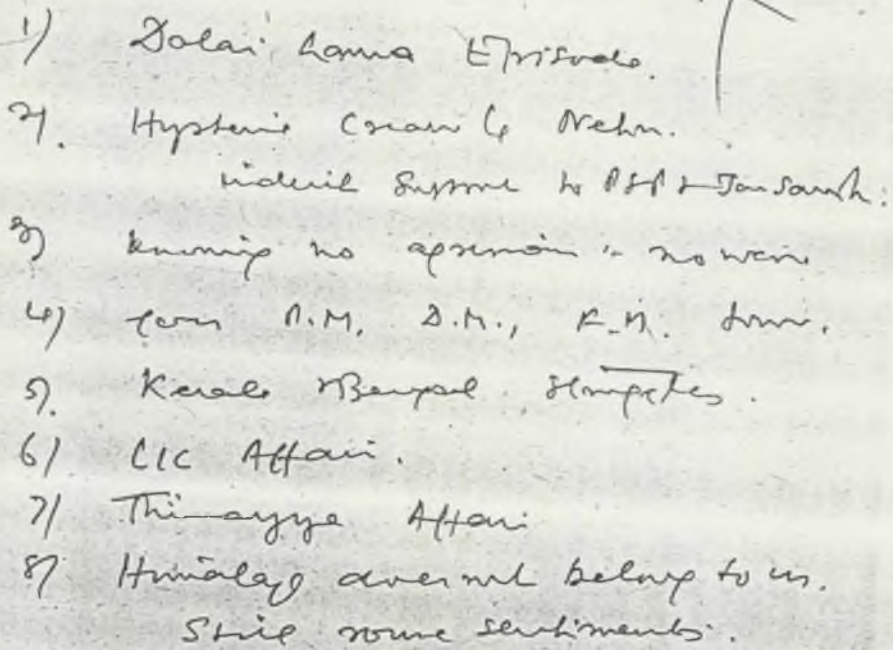 1) Dalai Lama Episode.
2) Hysteric Nehru.
indirect Support to PSP & Jansangh.
3) knowing no aggression - no war
4) P.M. D.M., F.M.
5) Kerala & Bengal Struggles.
6) LIC Affair.
7) Thimayya Affair
8) Himalaya does not belong to us.
Still rouse sentiments.